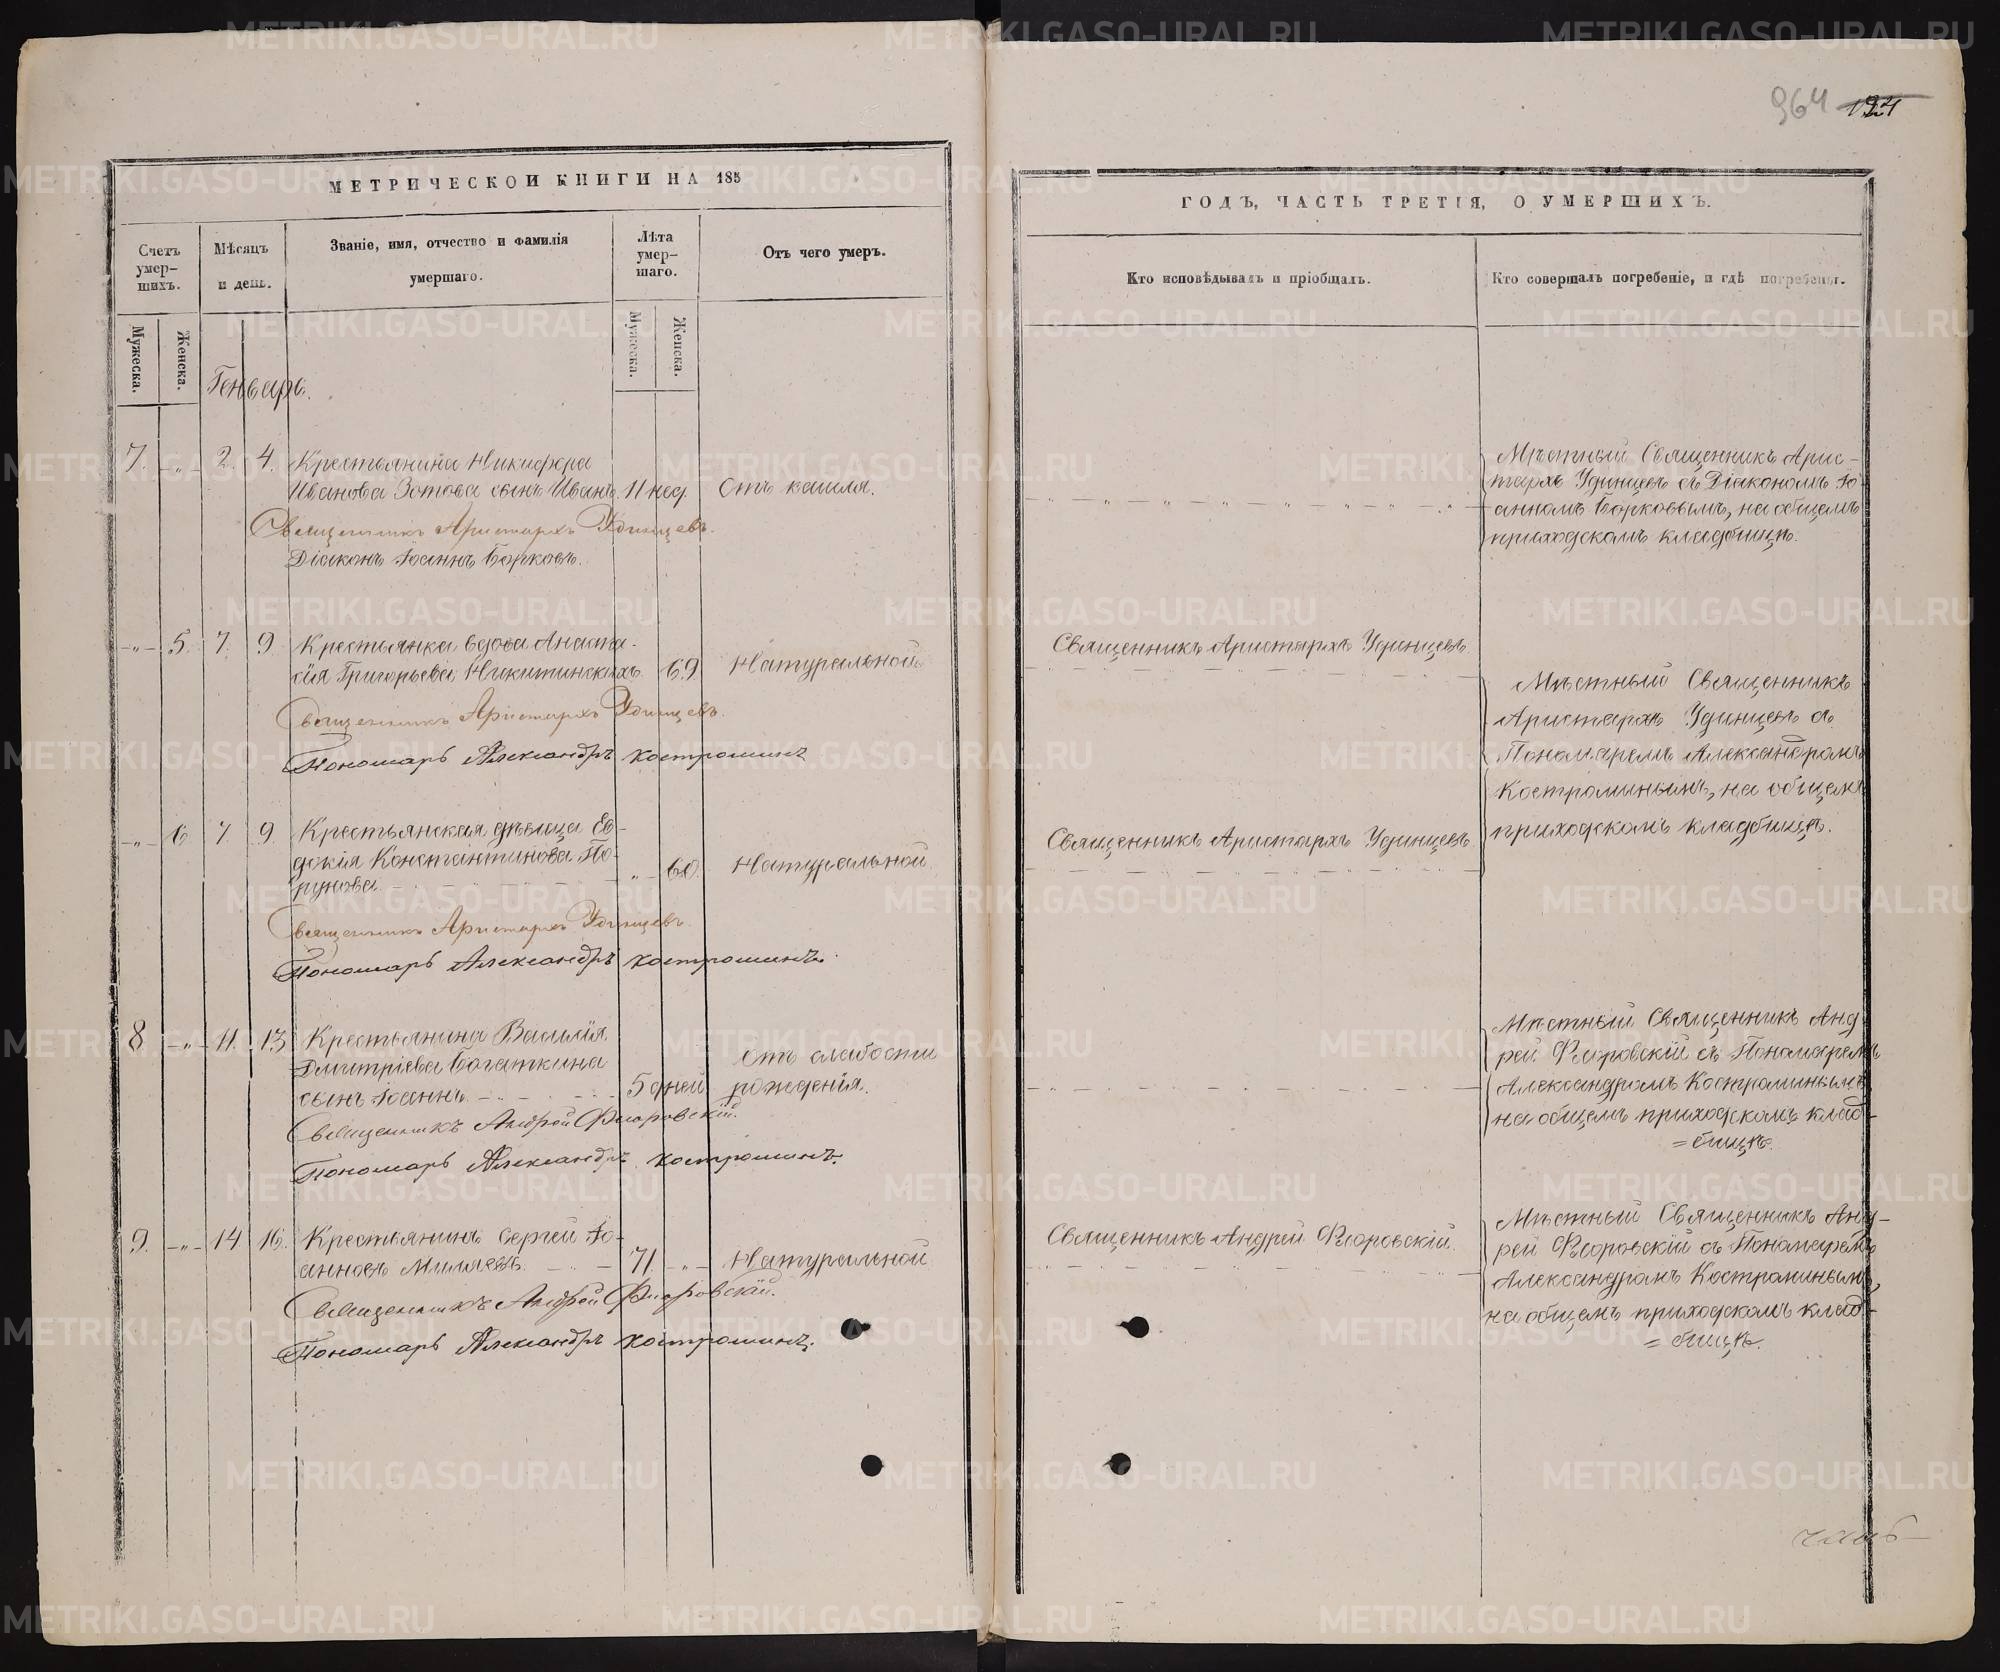 964 124
МЕТРИЧЕСКОЙ КНИГИ НА 185
Счетъ
умер-
шихъ.
Мѣсяцъ
и день.
Званіе, имя, отчество и фамилія
умершаго.
Лѣта
умер-
шаго.
Отъ чего умеръ.
Мужеска.
Женска.
Мужеска.
Женска.
Генварь.
7. -"- 2. 4. Крестьянина Никифора
Иванова Зотова сынъ Иванъ. 11 нед. Отъ кашля.
Священникъ Аристархъ Удинцевъ.
Діаконъ Іоаннъ Борковъ.
-"- 5. 7. 9. Крестьянка вдова Анаста-
сія Григорьева Никитинскихъ. 69. Натуральной.
Священникъ Аристархъ Удинцевъ.
Пономарь Александръ Костроминъ
-"- 6 7. 9. Крестьянская дѣвица Ев-
докія Константинова По-
рунова. " 60. Натуральной.
Священникъ Аристархъ Удинцевъ.
Пономарь Александръ Костроминъ.
8 -"- 11. 13. Крестьянина Василія
Дмитріева Богаткина
сынъ Іоаннъ. 5 дней. Отъ слабости
рожденія.
Священникъ Андрей Флоровскій.
Пономарь Александръ Костроминъ.
9. -"- 14 16. Крестьянинъ Сергей Іо-
анновъ Миляевъ. 71. -"- Натуральной.
Священникъ Андрей Флоровскій.
Пономарь Александръ Костроминъ.
ГОДЪ, ЧАСТЬ ТРЕТІЯ, О УМЕРШИХЪ.
Кто исповѣдывалъ и пріобщалъ.
Кто совершалъ погребеніе, и гдѣ погребены.
Мѣстный Священникъ Арис-
тархъ Удинцев съ Діакономъ Іо-
анномъ Борковымъ, на общемъ
приходскомъ кладбищѣ.
Священникъ Аристархъ Удинцевъ
Мѣстный Священникъ
Аристархъ Удинцев съ
Пономаремъ Александромъ
Костроминымъ, на общемъ
приходскомъ кладбищѣ.
Священникъ Аристархъ Удинцевъ.
Мѣстный Священникъ Анд-
рей Флоровскій съ Пономаремъ
Александромъ Костроминымъ
на общемъ приходскомъ клад-
=бищѣ.
Священникъ Андрей Флоровскій.
Мѣстный Священникъ Анд-
рей Флоровскій съ Пономаремъ
Александромъ Костроминымъ,
на общемъ приходскомъ клад-
=бищѣ.
METRIKI.GASO-URAL.RU